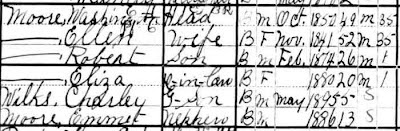 Moore, Washingt Head B M Oct. 1850 49 M 35
—, Ellen Wife B F Nov. 1841 52 M 35
—, Robert Son B M Feb. 1874 26 M 1
—, Eliza D-in-law B F 1880 20 M 1
Wilks, Charley G-Son B M May 1895 5 S
Moore, Emmet Nephew B M 1886 13 S